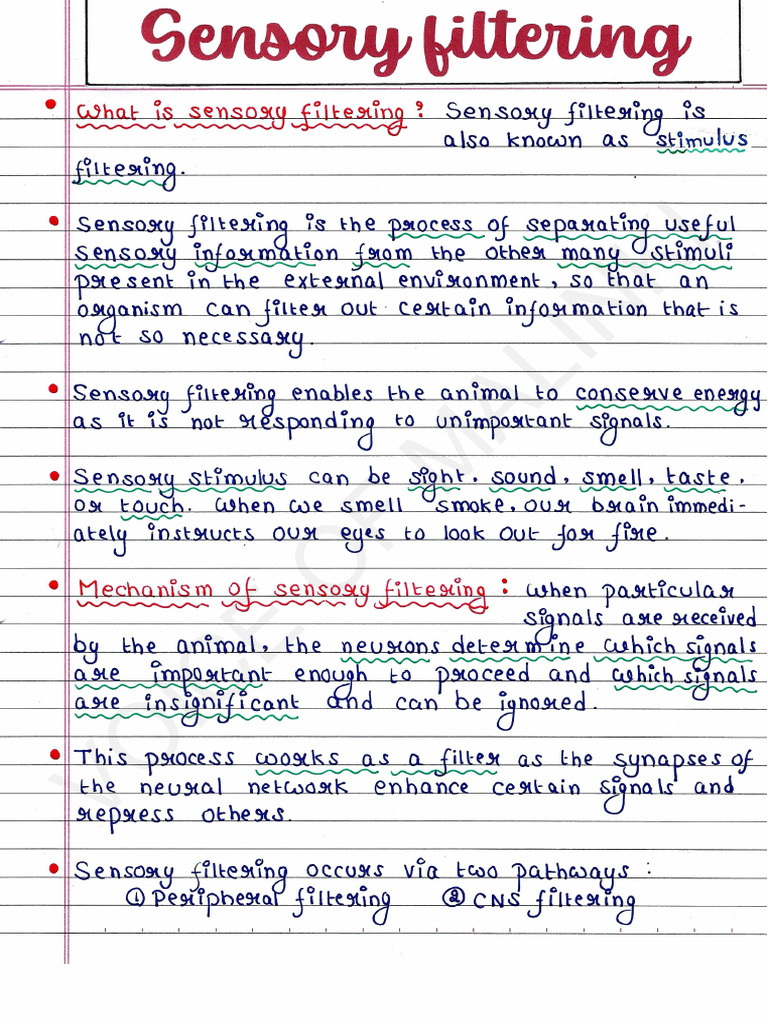 Sensory filtering
• What is sensory filtering? Sensory filtering is
also known as stimulus
filtering.
• Sensory filtering is the process of separating useful
sensory information from the other many stimuli
present in the external environment, so that an
organism can filter out certain information that is
not so necessary.
• Sensory filtering enables the animal to conserve energy
as it is not responding to unimportant signals.
• Sensory stimulus can be sight, sound, smell, taste,
or touch. When we smell smoke, our brain immedi-
ately instructs our eyes to look out for fire.
• Mechanism of sensory filtering: When particular
signals are received
by the animal, the neurons determine which signals
are important enough to proceed and which signals
are insignificant and can be ignored.
• This process works as a filter as the synapses of
the neural network enhance certain signals and
repress others.
• Sensory filtering occurs via two pathways:
① Peripheral filtering ② CNS filtering
VOICE OF MALINI